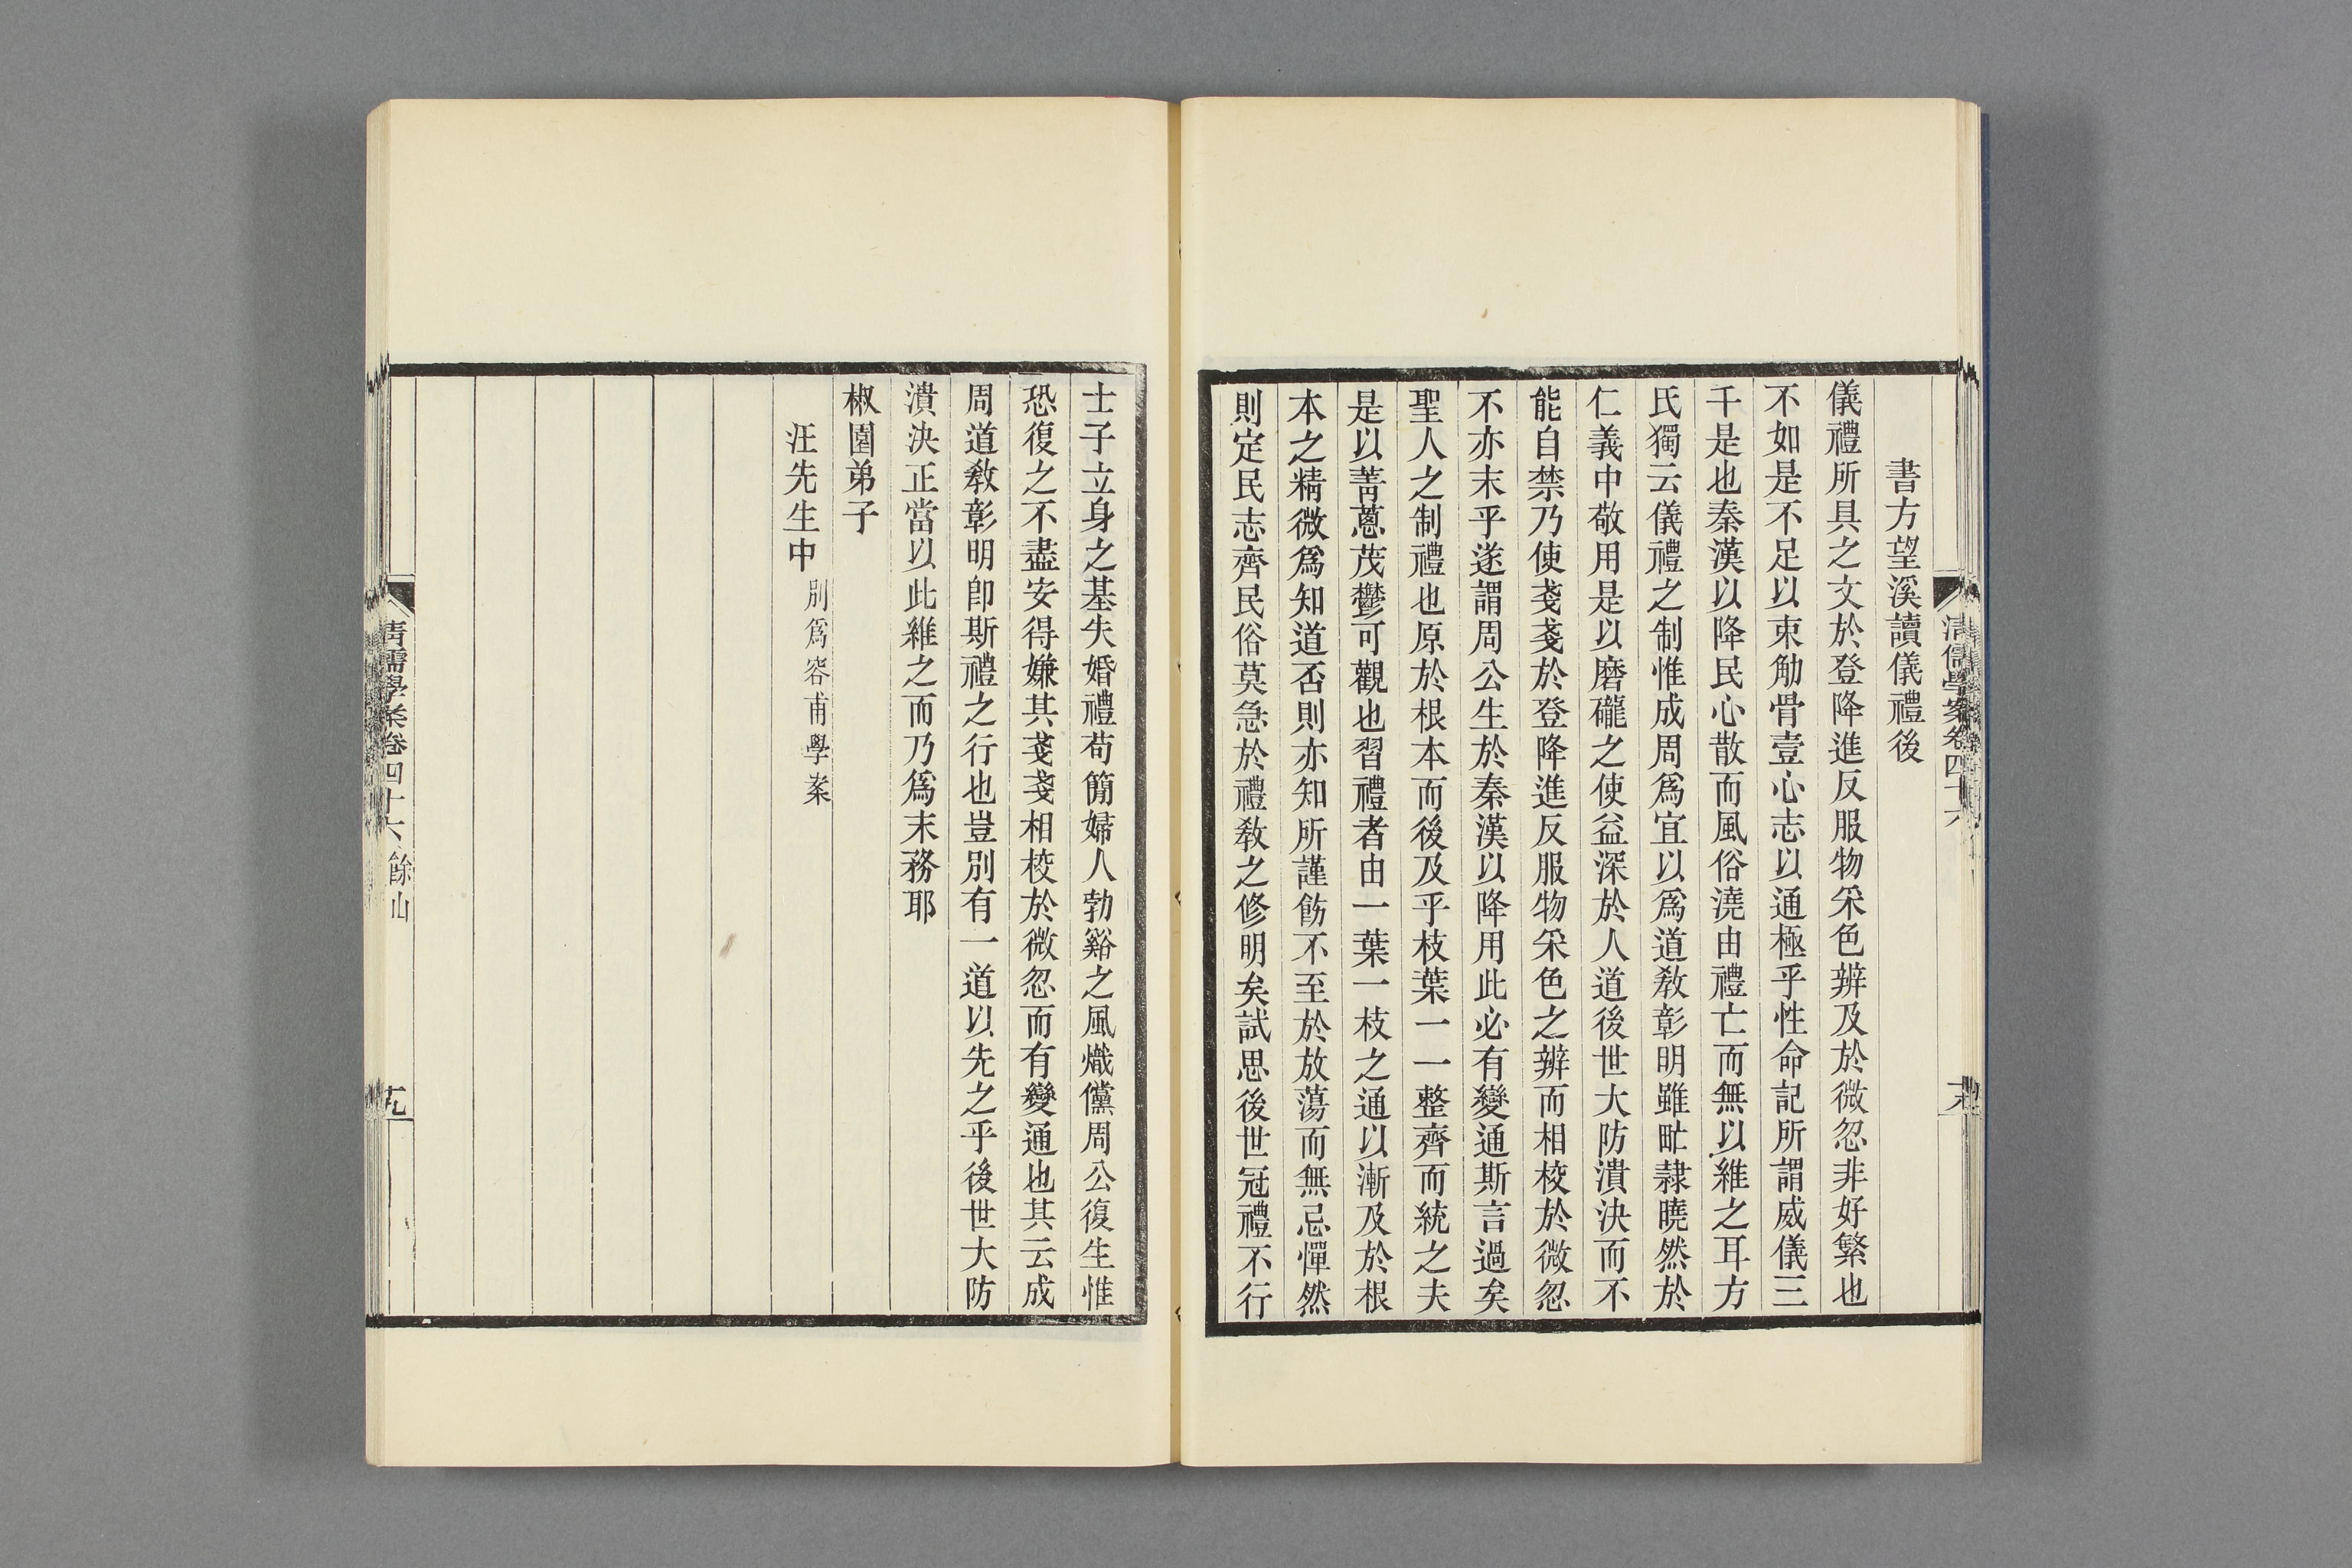 書方望溪讀儀禮後
儀禮所具之文於登降進反服物采色辨及於微忽非好繁也
不如是不足以束觔骨壹心志以通極乎性命記所謂威儀三
千是也秦漢以降民心散而風俗澆由禮亡而無以維之耳方
氏獨云儀禮之制惟成周爲宜以爲道敎彰明雖甿隷曉然於
仁義中敬用是以磨礲之使益深於人道後世大防潰決而不
能自禁乃使戔戔於登降進反服物采色之辨而相校於微忽
不亦末乎遂謂周公生於秦漢以降用此必有變通斯言過矣
聖人之制禮也原於根本而後及乎枝葉一一整齊而統之夫
是以菁蔥茂鬱可觀也習禮者由一葉一枝之通以漸及於根
本之精微爲知道否則亦知所謹飭不至於放蕩而無忌憚然
則定民志齊民俗莫急於禮敎之修明矣試思後世冠禮不行
士子立身之基失婚禮苟簡婦人勃谿之風熾儻周公復生惟
恐復之不盡安得嫌其戔戔相校於微忽而有變通也其云成
周道敎彰明卽斯禮之行也豈別有一道以先之乎後世大防
潰決正當以此維之而乃爲末務耶
椒園弟子
汪先生中 別爲容甫學案
清儒學案卷四十六 餘山
十九